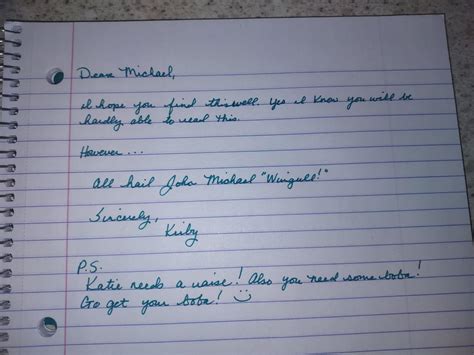 Dear Michael,
I hope you find this well. Yes I know you will be
hardly able to read this.
However...
All hail John Michael "Wingull!"
Sincerely,
Kirby
P.S.
Katie needs a raise! Also you need some boba!
Go get your boba! :)